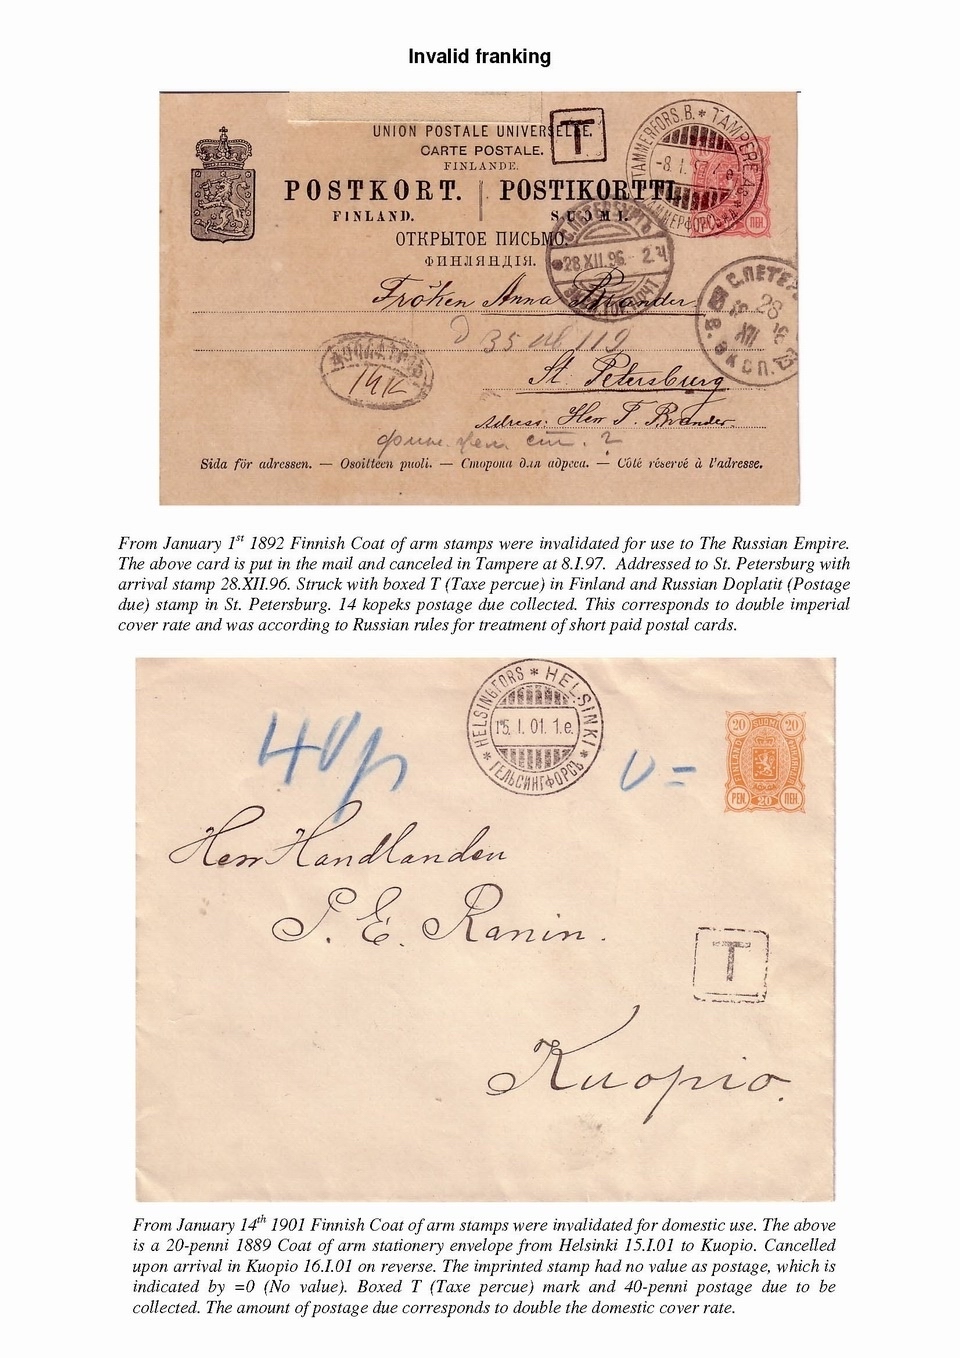 Invalid franking
T
UNION POSTALE UNIVERSELLE.
CARTE POSTALE.
FINLANDE.
POSTKORT. | POSTIKORTTI.
FINLAND. SUOMI.
ОТКРЫТОЕ ПИСЬМО.
ФИНЛЯНДІЯ.
TAMMERFORS.B. * TAMPERE.As.
-8.I.
ПЕН.
С.ПЕТЕРБУРГЪ
28.XII.96. 2 Ч
С.ПЕТЕР
28
XII
ЭКСП.
Fröken Anna Brander
35
St. Petersburg
14 K
Adress: Herr F. Brander.
Sida för adressen. — Osoitteen puoli. — Сторона для адреса. — Côté réservé à l'adresse.
From January 1st 1892 Finnish Coat of arm stamps were invalidated for use to The Russian Empire.
The above card is put in the mail and canceled in Tampere at 8.I.97. Addressed to St. Petersburg with
arrival stamp 28.XII.96. Struck with boxed T (Taxe percue) in Finland and Russian Doplatit (Postage
due) stamp in St. Petersburg. 14 kopeks postage due collected. This corresponds to double imperial
cover rate and was according to Russian rules for treatment of short paid postal cards.
HELSINGFORS * HELSINKI *
15.I.01.1.e.
ГЕЛЬСИНГФОРСЪ
40p
0 =
20 SUOMI 20
FINLAND
PEN 20 ПЕН.
Herr Handlanden
P. E. Ranin.
T
Kuopio.
From January 14th 1901 Finnish Coat of arm stamps were invalidated for domestic use. The above
is a 20-penni 1889 Coat of arm stationery envelope from Helsinki 15.I.01 to Kuopio. Cancelled
upon arrival in Kuopio 16.I.01 on reverse. The imprinted stamp had no value as postage, which is
indicated by =0 (No value). Boxed T (Taxe percue) mark and 40-penni postage due to be
collected. The amount of postage due corresponds to double the domestic cover rate.